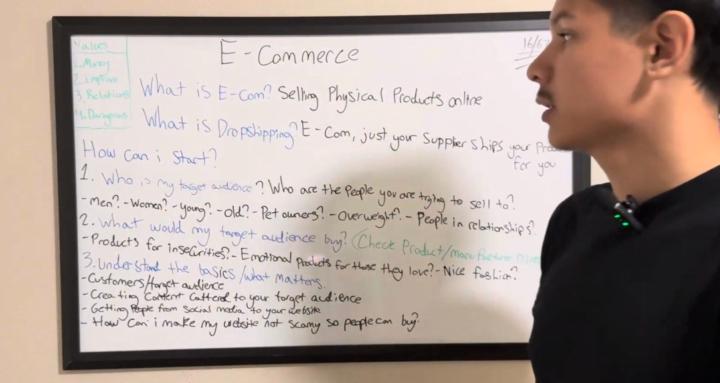 E-Commerce
16/6
Values
1. Money
2. Improve
3. Relations
4. Dangerous
What is E-Com? Selling Physical Products online
What is Dropshipping? E-Com, just your supplier ships your Prod
for you
How can i Start?
1. Who is my target audience? Who are the people you are trying to sell to?
-Men? -Women? -young? -old? -Pet owners? -overweight? - People in relationships?
2. What would my target audience buy? (Check Product/manufacturer
-Products for insecurities? - Emotional products for those they love? -Nice fashion?
3. Understand the basics/what matters.
-Customers/target audience
-Creating Content Cattered to your target audience
-Getting People from social media to your website
-How can i make my website not scamy so people can buy?